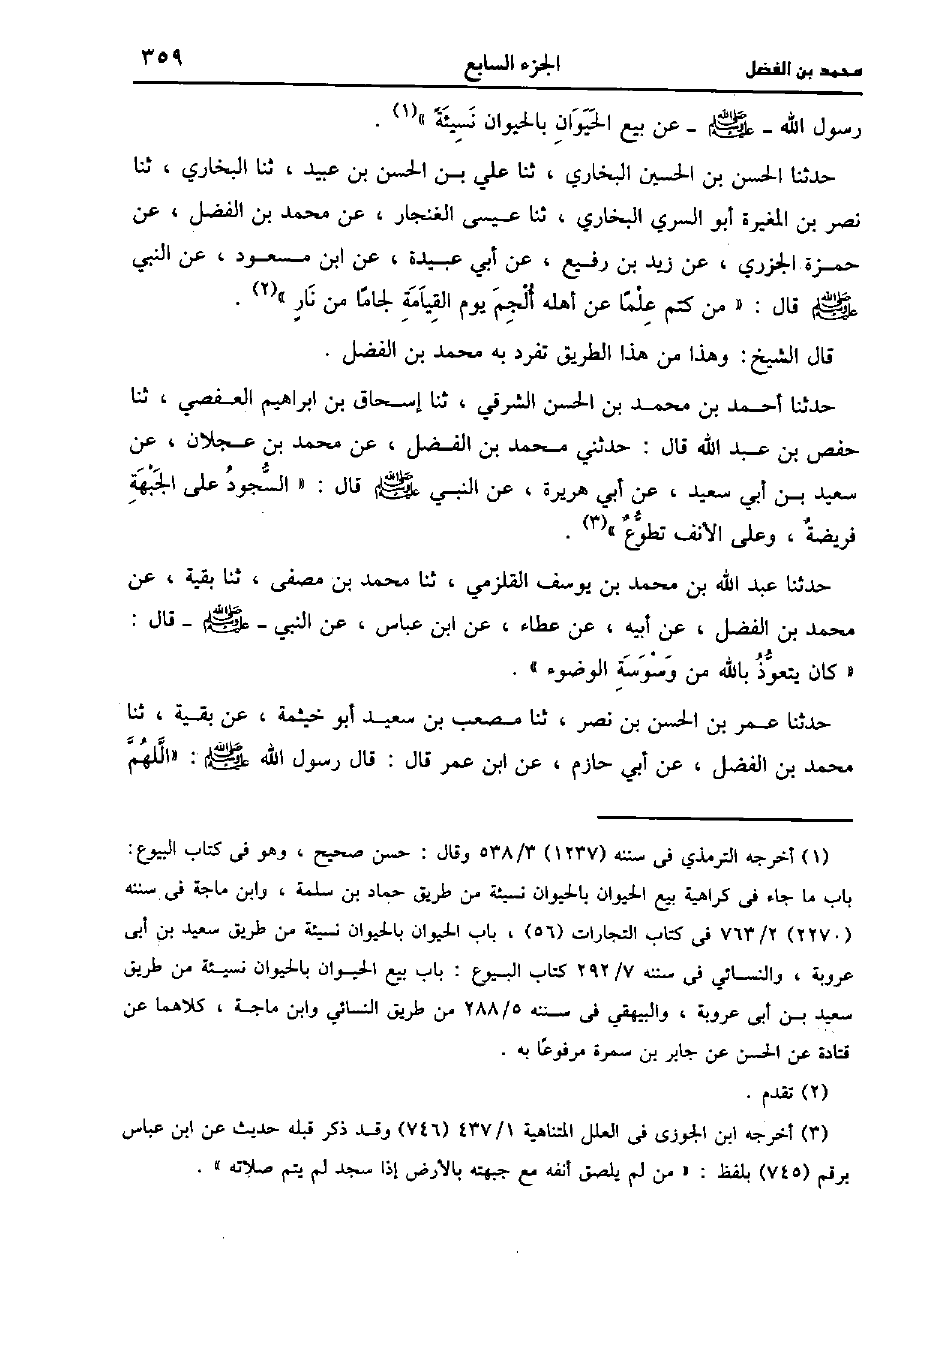 محمد بن الفضل الجزء السابع ٣٥٩
رسول الله ـ ﷺ ـ عن بيع الحَيَوَانِ بالحيوان نَسِيئَةً »(١) .
حدثنا الحسن بن الحسين البخاري ، ثنا علي بن الحسن بن عبيد ، ثنا البخاري ، ثنا
نصر بن المغيرة أبو السري البخاري ، ثنا عيسى الغنجار ، عن محمد بن الفضل ، عن
حمزة الجزري ، عن زيد بن رفيع ، عن أبي عبيدة ، عن ابن مسعود ، عن النبي
ﷺ قال : « من كتم عِلْمًا عن أهله أُلْجِمَ يوم القِيَامَةِ لجامًا من نَارٍ »(٢) .
قال الشيخ : وهذا من هذا الطريق تفرد به محمد بن الفضل .
حدثنا أحمد بن محمد بن الحسن الشرقي ، ثنا إسحاق بن ابراهيم العفصي ، ثنا
حفص بن عبد الله قال : حدثني محمد بن الفضل ، عن محمد بن عجلان ، عن
سعيد بن أبي سعيد ، عن أبي هريرة ، عن النبي ﷺ قال : « السُّجودُ على الجَبْهَةِ
فريضةٌ ، وعلى الأنف تطوُّعٌ »(٣) .
حدثنا عبد الله بن محمد بن يوسف القلزمي ، ثنا محمد بن مصفى ، ثنا بقية ، عن
محمد بن الفضل ، عن أبيه ، عن عطاء ، عن ابن عباس ، عن النبي ـ ﷺ ـ قال :
« كان يتعوَّذُ بالله من وَسْوَسَةِ الوضوء » .
حدثنا عمر بن الحسن بن نصر ، ثنا مصعب بن سعيد أبو خيثمة ، عن بقية ، ثنا
محمد بن الفضل ، عن أبي حازم ، عن ابن عمر قال : قال رسول الله ﷺ : «اللَّهُمَّ
(١) أخرجه الترمذي فى سننه (١٢٣٧) ٥٣٨/٣ وقال : حسن صحيح ، وهو فى كتاب البيوع:
باب ما جاء فى كراهية بيع الحيوان بالحيوان نسيئة من طريق حماد بن سلمة ، وابن ماجة فى سننه
(٢٢٧٠) ٧٦٣/٢ فى كتاب التجارات (٥٦) ، باب الحيوان بالحيوان نسيئة من طريق سعيد بن أبى
عروبة ، والنسائي فى سننه ٢٩٢/٧ كتاب البيوع : باب بيع الحيوان بالحيوان نسيئة من طريق
سعيد بن أبى عروبة ، والبيهقي فى سننه ٢٨٨/٥ من طريق النسائي وابن ماجة ، كلاهما عن
قتادة عن الحسن عن جابر بن سمرة مرفوعًا به .
(٢) تقدم .
(٣) أخرجه ابن الجوزى فى العلل المتناهية ٤٣٧/١ (٧٤٦) وقد ذكر قبله حديث عن ابن عباس
برقم (٧٤٥) بلفظ : « من لم يلصق أنفه مع جبهته بالأرض إذا سجد لم يتم صلاته » .